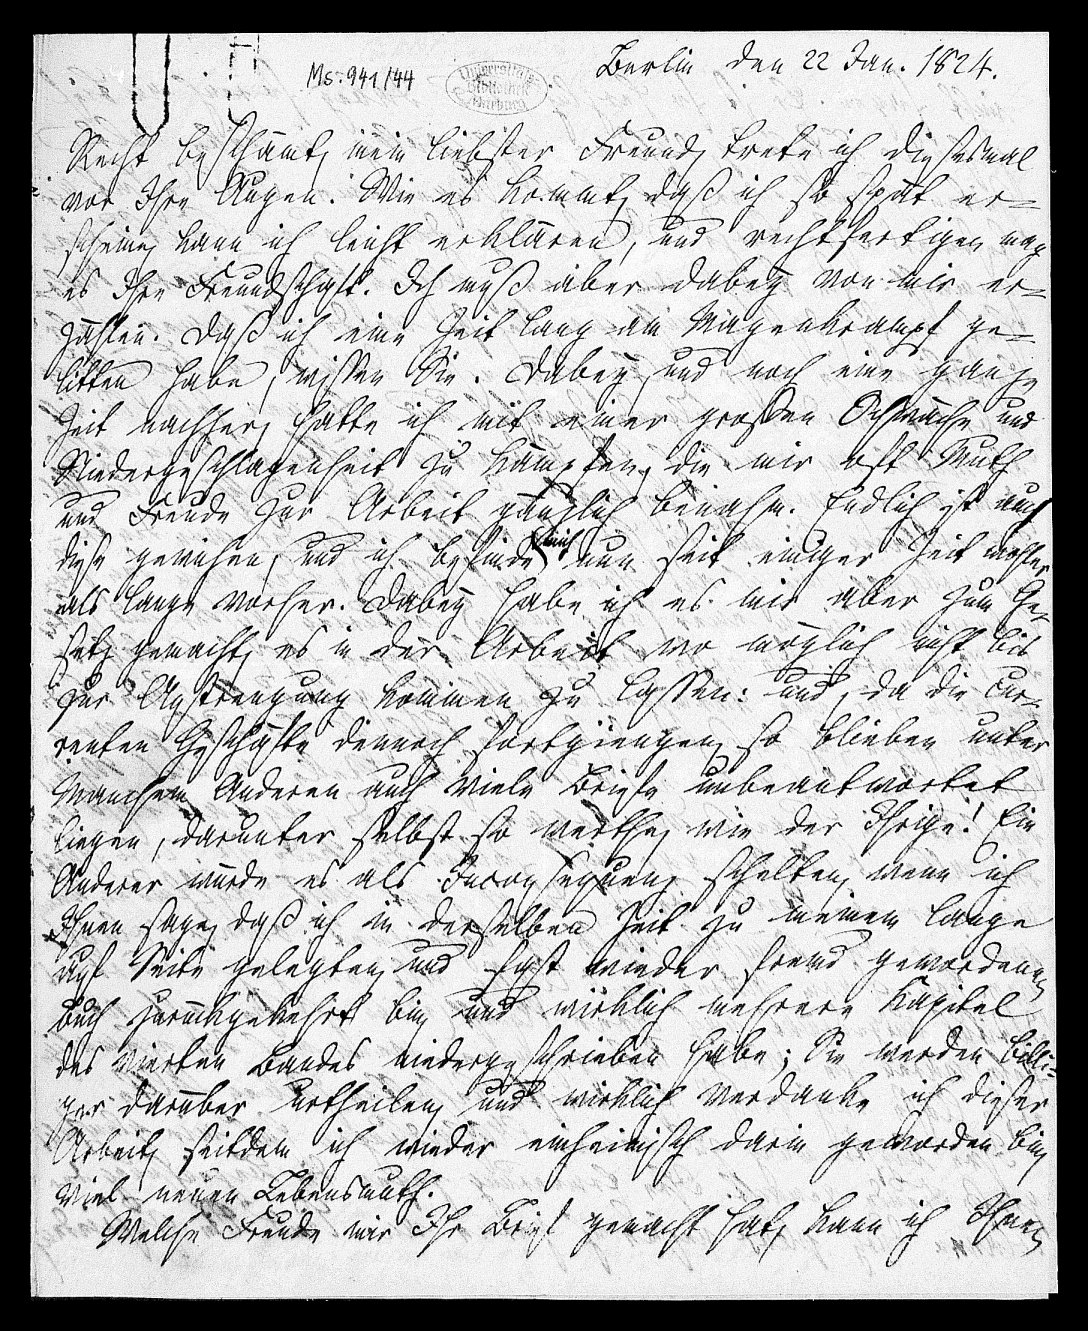 Ms. 941/44
Universitäts-
Bibliothek
Marburg
Berlin den 22 Jan. 1824.
Recht beschämt, mein liebster Freund, trete ich diesesmal
vor Ihre Augen. Wie es kommt, daß ich so spät er-
scheine, kann ich leicht erklären, und rechtfertigen mag
es Ihre Freundschaft. Ich muß aber dabey von mir er-
zählen. Daß ich eine Zeit lang am Magenkrampf ge-
litten habe, wissen Sie. Dabey und noch eine ganze
Zeit nachher, hatte ich mit einer großen Schwäche und
Niedergeschlagenheit zu kämpfen, die mir oft Muth
und Freude zur Arbeit gänzlich benahm. Endlich ist auch
diese gewichen, und ich befinde mich nun seit einiger Zeit wohler
als lange vorher. Dabey habe ich es mir aber zum Ge-
setz gemacht, es in der Arbeit wo möglich nicht bis
zur Anstrengung kommen zu lassen: und, da die cur-
renten Geschäfte dennoch fortgiengen, so blieben unter
Manchem Anderen auch viele Briefe unbeantwortet
liegen, darunter selbst so werthe, wie der Ihrige! Ein
Anderer würde es als Inconsequenz schelten, wenn ich
Ihnen sage, daß ich in derselben Zeit zu meinem lange
auf Seite gelegten, und fast wieder fremd gewordenen,
Buch zurückgekehrt bin, und wirklich mehrere Kapitel
des vierten Bandes niedergeschrieben habe; Sie werden billi-
ger darüber urtheilen, und wirklich verdanke ich dieser
Arbeit, seitdem ich wieder einheimisch darin geworden bin,
viel neuen Lebensmuth.
Welche Freude mir Ihr Brief gemacht hat, kann ich Ihnen